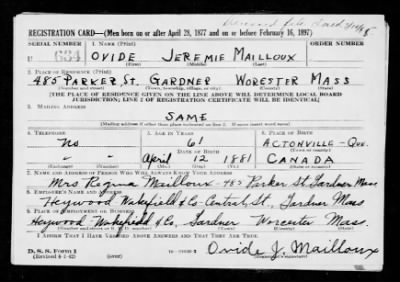 REGISTRATION CARD—(Men born on or after April 28, 1877 and on or before February 16, 1897)
SERIAL NUMBER 1. NAME (Print) ORDER NUMBER
U 634 OVIDE JEREMIE MAILLOUX
2. PLACE OF RESIDENCE (Print)
485 PARKER St. GARDNER WORCESTER MASS
(Number and street) (Town, township, village, or city) (County) (State)
[THE PLACE OF RESIDENCE GIVEN ON THE LINE ABOVE WILL DETERMINE LOCAL BOARD
JURISDICTION; LINE 2 OF REGISTRATION CERTIFICATE WILL BE IDENTICAL]
3. MAILING ADDRESS
SAME
(Mailing address if other than place indicated on line 2. If same insert word same)
4. TELEPHONE 5. AGE IN YEARS 6. PLACE OF BIRTH
No 61 ACTONVILLE - QUE.
DATE OF BIRTH
April 12 1881 CANADA
7. NAME AND ADDRESS OF PERSON WHO WILL ALWAYS KNOW YOUR ADDRESS
Mrs Regina Mailloux - 485 Parker St. Gardner Mass
8. EMPLOYER'S NAME AND ADDRESS
Heywood Wakefield & Co Central St., Gardner Mass
9. PLACE OF EMPLOYMENT OR BUSINESS
Heywood Wakefield & Co, Gardner Worcester Mass.
I AFFIRM THAT I HAVE VERIFIED ABOVE ANSWERS AND THAT THEY ARE TRUE.
D. S. S. Form 1
(Revised 4-1-42) Ovide J. Mailloux